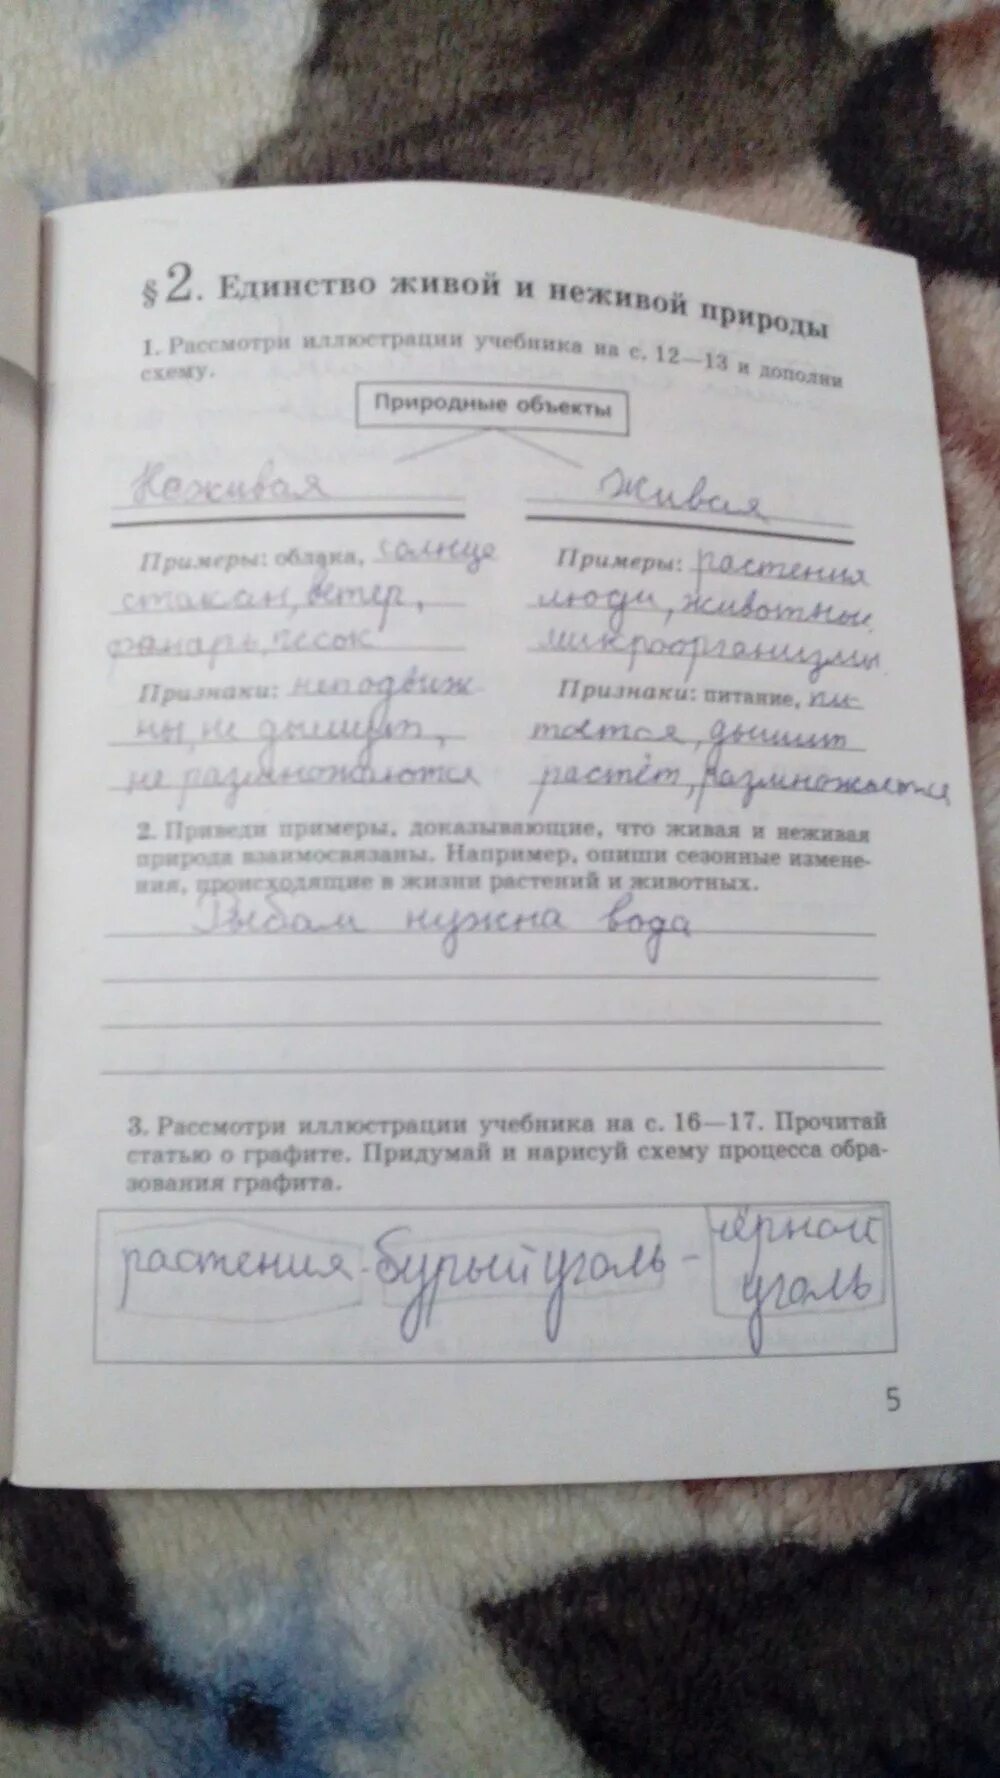 § 2. Единство живой и неживой природы
1. Рассмотри иллюстрации учебника на с. 12—13 и дополни
схему.
Природные объекты
Неживая
Живая
Примеры: облака, солнце
стакан, ветер,
фанарь, песок
Признаки: неподвиж
ны, не дышут,
не размножаются
Примеры: растения
люди, животные
микроорганизмы
Признаки: питание, пи-
таются, дышит
растёт, размножается
2. Приведи примеры, доказывающие, что живая и неживая
природа взаимосвязаны. Например, опиши сезонные измене-
ния, происходящие в жизни растений и животных.
Рыбам нужна вода
3. Рассмотри иллюстрации учебника на с. 16—17. Прочитай
статью о графите. Придумай и нарисуй схему процесса обра-
зования графита.
растения - бурый уголь - чёрной
уголь
5